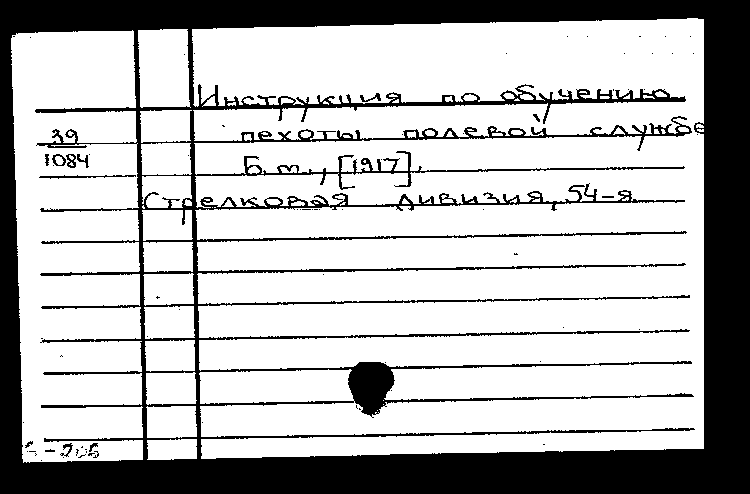 Инструкция по обучению
39 пехоты полевой службе
1084 Б. т., [1917].
Стрелковая дивизия, 54-я.
Б-206